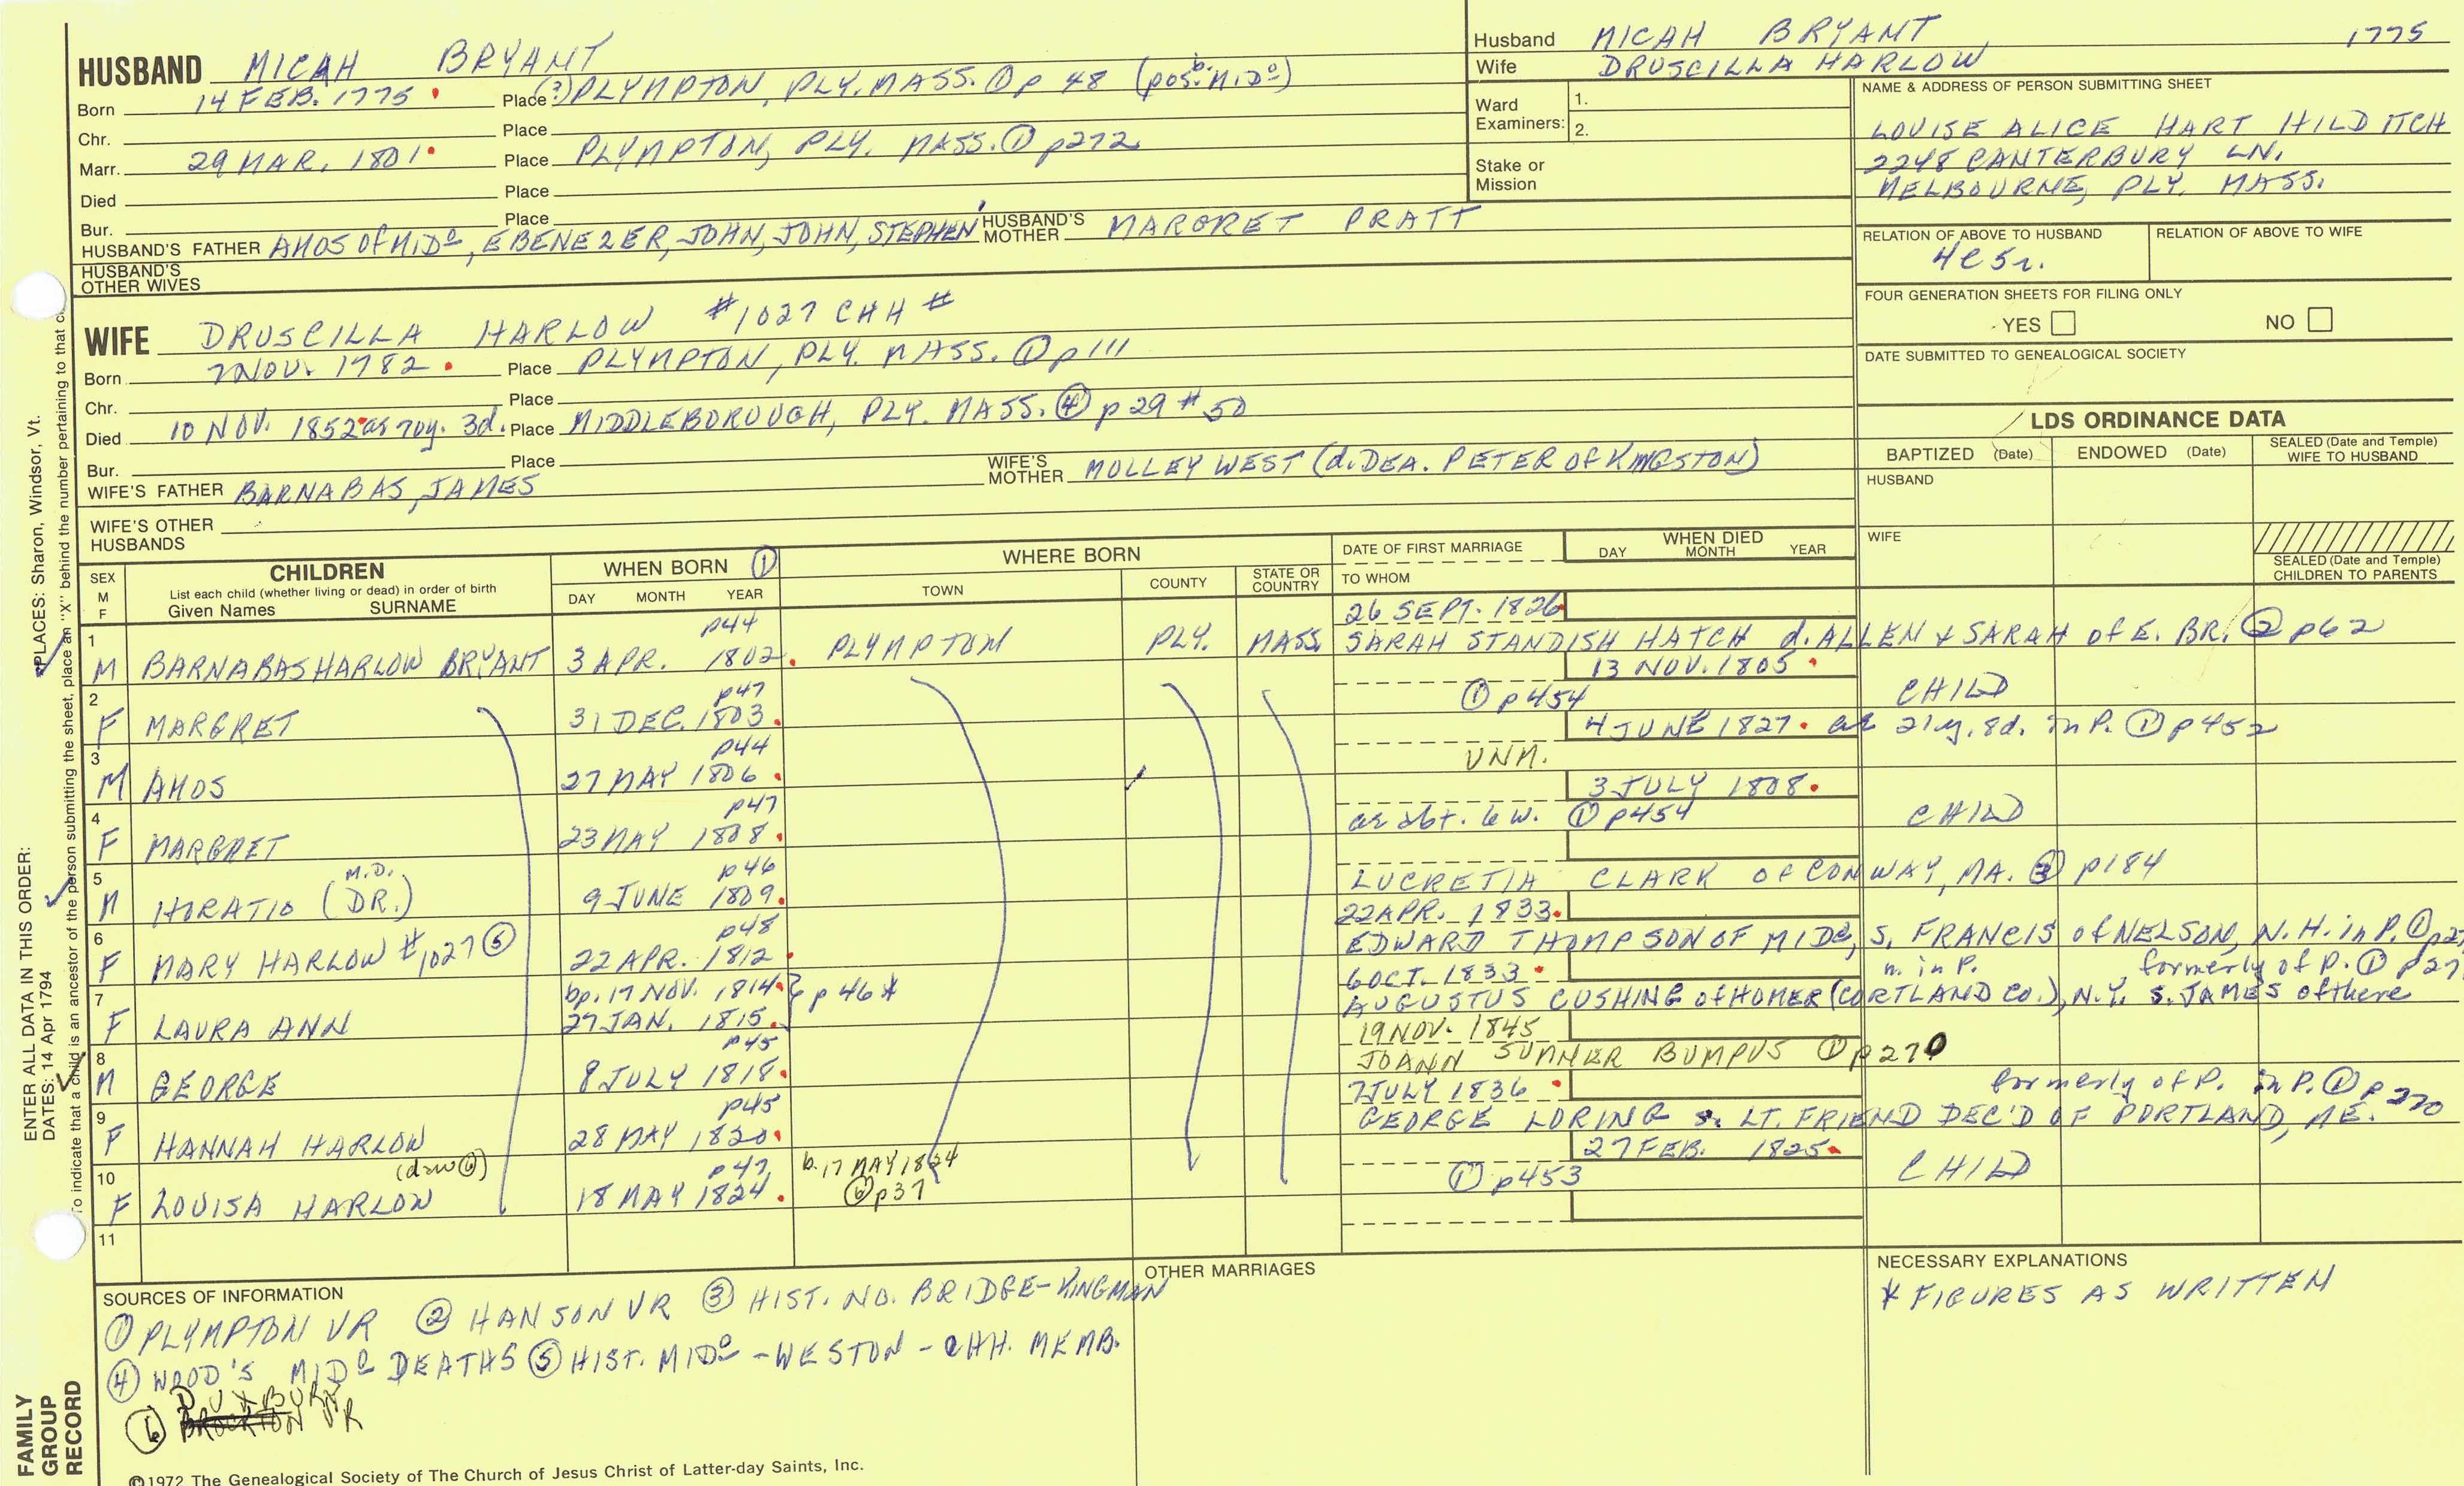 HUSBAND MICAH BRYANT
Born 14 FEB. 1775 Place (?) PLYMPTON, PLY. MASS. ① p 48 (pos. b. MIDo)
Chr. Place
Marr. 29 MAR. 1801 Place PLYMPTON, PLY. MASS. ① p272
Died Place
Bur. Place
HUSBAND'S FATHER AMOS Of MIDo, EBENEZER, JOHN, JOHN, STEPHEN HUSBAND'S MOTHER MARGRET PRATT
HUSBAND'S OTHER WIVES
WIFE DRUSCILLA HARLOW #1027 CHH #
Born 7 NOV. 1782 Place PLYMPTON, PLY. MASS. ① p111
Chr. Place
Died 10 NOV. 1852 ae 70y. 3d. Place MIDDLEBOROUGH, PLY. MASS. ④ p 29 # 50
Bur. Place
WIFE'S FATHER BARNABAS, JAMES WIFE'S MOTHER MOLLEY WEST (d. DEA. PETER Of KINGSTON)
WIFE'S OTHER HUSBANDS
Husband MICAH BRYANT 1775
Wife DRUSCILLA HARLOW
Ward Examiners: 1.
2.
Stake or Mission
NAME & ADDRESS OF PERSON SUBMITTING SHEET
LOUISE ALICE HART HILDITCH
2248 CANTERBURY LN.
MELBOURNE, PLY. MASS.
RELATION OF ABOVE TO HUSBAND RELATION OF ABOVE TO WIFE
4C5r.
FOUR GENERATION SHEETS FOR FILING ONLY
YES NO
DATE SUBMITTED TO GENEALOGICAL SOCIETY
LDS ORDINANCE DATA
BAPTIZED (Date) ENDOWED (Date) SEALED (Date and Temple) WIFE TO HUSBAND
HUSBAND
WIFE
SEALED (Date and Temple) CHILDREN TO PARENTS
SEX M F CHILDREN List each child (whether living or dead) in order of birth Given Names SURNAME
WHEN BORN ① DAY MONTH YEAR
WHERE BORN TOWN COUNTY STATE OR COUNTRY
DATE OF FIRST MARRIAGE TO WHOM
WHEN DIED DAY MONTH YEAR
p44 26 SEPT. 1826
1 M BARNABAS HARLOW BRYANT 3 APR. 1802 PLYMPTON PLY. MASS SARAH STANDISH HATCH d. ALLEN & SARAH of E. BR. ② p62
p47 13 NOV. 1805
2 F MARGRET 31 DEC. 1803 ① p454 CHILD
p44 4 JUNE 1827 ae 21y. 8d. in P. ① p452
3 M AMOS 27 MAY 1806 UNM.
p47 3 JULY 1808
4 F MARGRET 23 MAY 1808 ae abt. 6 w. ① p454 CHILD
p46
5 M HORATIO (DR.) M.D. 9 JUNE 1809 LUCRETIA CLARK Of CONWAY, MA. ③ p184
p48 22 APR. 1833
6 F MARY HARLOW #1027 ⑤ 22 APR. 1812 EDWARD THOMPSON OF MIDo, s. FRANCIS of NELSON, N.H. in P. ① p27
bp. 17 NOV. 1814 p 46* 6 OCT. 1833 m. in P. formerly of P. ① p 27
7 F LAURA ANN 27 JAN. 1815 AUGUSTUS CUSHING of HOMER (CORTLAND CO.), N.Y. s. JAMES of there
p45 19 NOV. 1845
8 M GEORGE 8 JULY 1818 JOANN SUMNER BUMPUS ① p270
p45 7 JULY 1836 formerly of P. in P. ① p 270
9 F HANNAH HARLOW 28 MAY 1820 GEORGE LORING s. LT. FRIEND DEC'D OF PORTLAND, ME.
p47 b. 17 MAY 1824 27 FEB. 1825
10 F LOUISA HARLOW 18 MAY 1824 ⑥ p37 ① p453 CHILD
11
SOURCES OF INFORMATION
① PLYMPTON VR ② HANSON VR ③ HIST. NO. BRIDGE-KINGMAN
④ WOOD'S MIDo DEATHS ⑤ HIST. MIDo - WESTON - CHH. MEMB.
DUXBURY
⑥ BROCKTON VR
OTHER MARRIAGES
NECESSARY EXPLANATIONS
* FIGURES AS WRITTEN
©1972 The Genealogical Society of The Church of Jesus Christ of Latter-day Saints, Inc.
FAMILY GROUP RECORD
ENTER ALL DATA IN THIS ORDER:
DATES: 14 Apr 1794
PLACES: Sharon, Windsor, Vt.
To indicate that a child is an ancestor of the person submitting the sheet, place an "X" behind the number pertaining to that